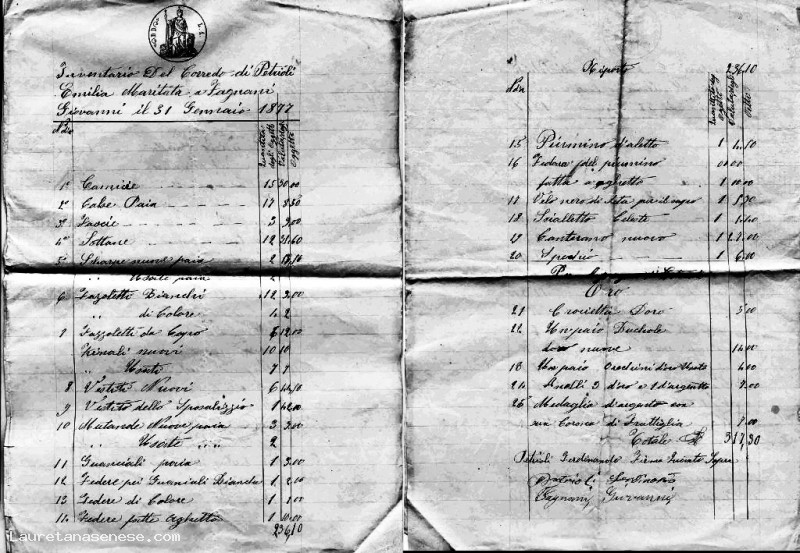 Inventario Del Corredo di Petrioli
Emilia Maritata a Fagnani
Giovanni il 31 Gennaio 1877
N. d'or
Quantità degli Ogetti
Valuta degli Oggetti
1° Camicie 15 30.00
2° Calze Paia 17 8.50
3° Fascie 3 3.00
4° Sottane 12 31.60
5° Sharpe nuove paia 2
" Usate paia 2
6 Fazzoletti Bianchi 12 3.00
" di Colore 4 2
7 Fazzoletti da Capo 6 12.00
Grinali nuovi 10 10
" Usati 7 7
8 Vestiti Nuovi 6
9 Vestito dello Sposalizzio 1 42.00
10 Mutande Nuove paia 3 3.00
" Usate " " 2
11 Guanciali paia 1 3.00
12 Federe pei Guanciali Bianche 1 2.00
13 Federe di Colore 1 1.00
14 Federe fatte Aghetto 1 10.00
236.10
Riporto 236.10
N. d'or
Quantità degli Ogetti
Valuta degli Ogetti
15 Piumino d'aletto 1
16 Federa pel piumino
fatta a aghetto 1 10.00
17 Velo nero di Seta per il capo 1
18 Scialletto Celeste 1
19 Canterano nuovo 1
20 Specchio 1 6.00
Oro
21 Crocietta D'oro 5.00
22 Un paio Buchole
nuove 14.00
23 Un paio Orecchini d'oro Usati 4.00
24 Anelli 3 d'oro e 1 d'argento
25 Medaglia d'argento con
una Corona di Frattiglia
Totale £ 317,30
Petrioli Ferdinando Firmo Quanto Sopra
Petrioli
Fagnani Giovanni
Lauretanasenese.com